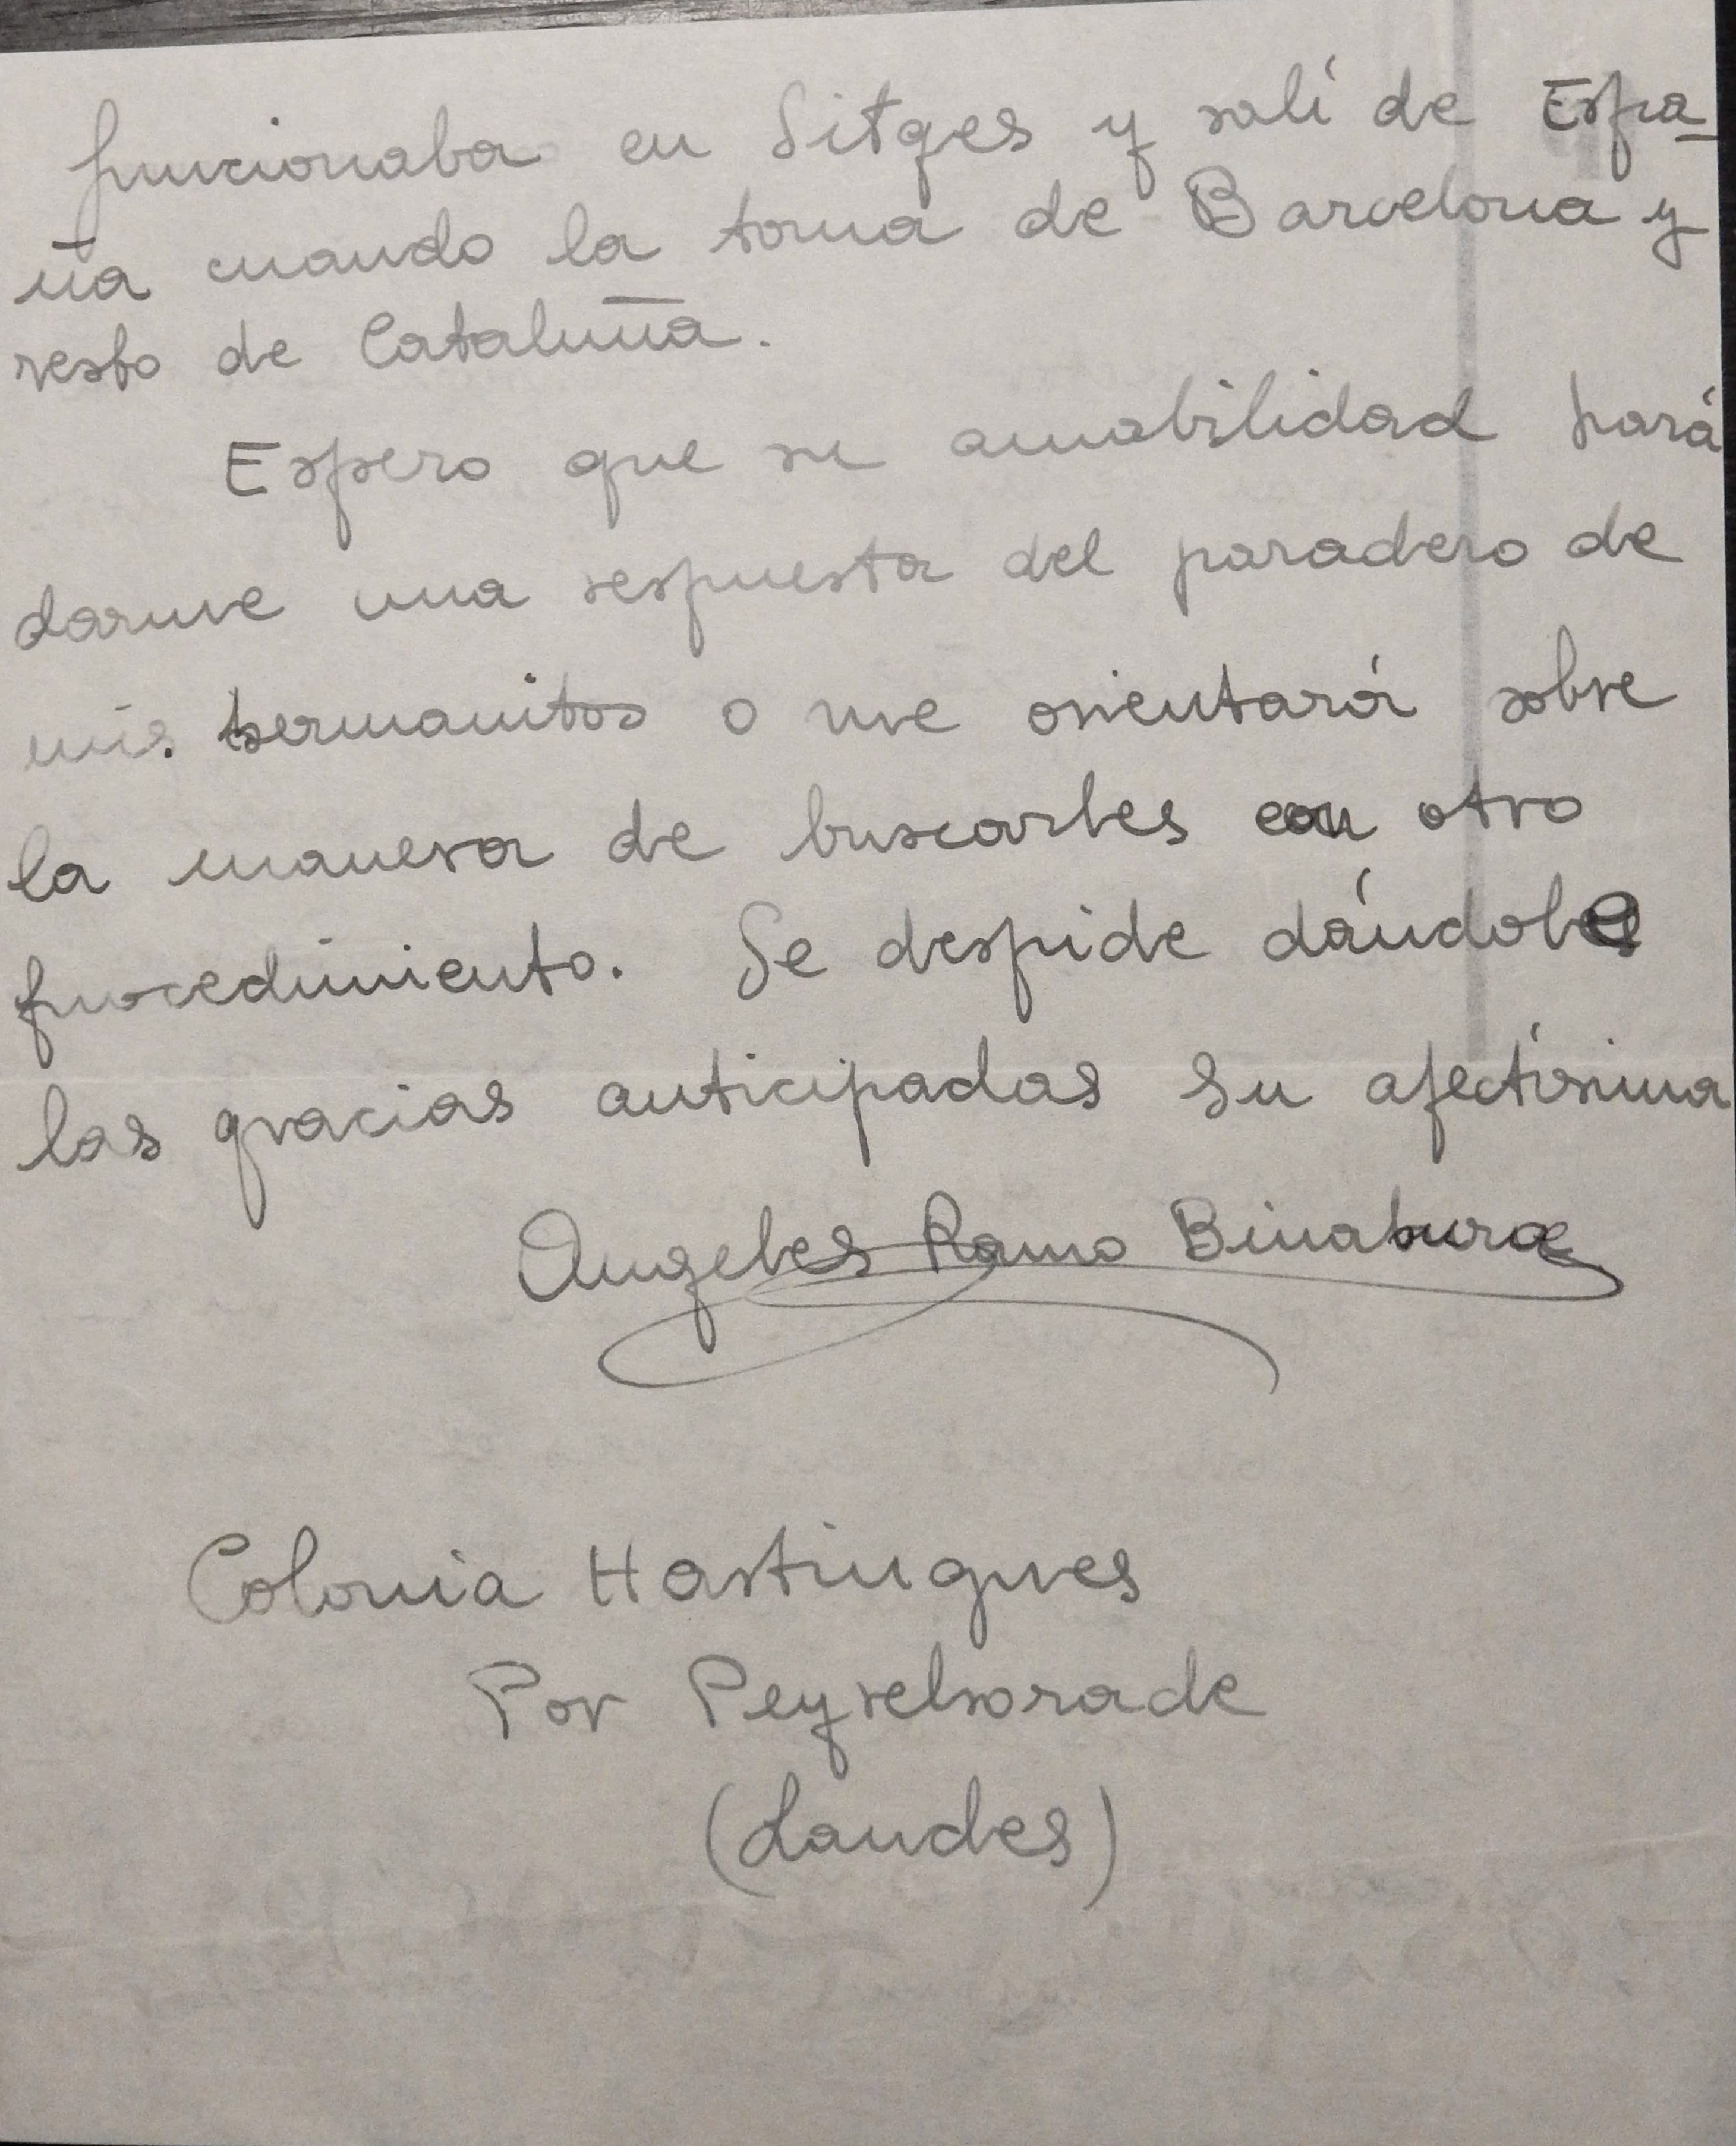 funcionaba en Sitges y salí de Espa-
ña cuando la toma de Barcelona y
resto de Cataluña.
Espero que su amabilidad hará
darme una respuesta del paradero de
mis hermanitos o me orientará sobre
la manera de buscarles con otro
procedimiento. Se despide dándole
las gracias anticipadas su afectísima
Angeles Ramo Binaburo
Colonia Hastingues
Por Peyrehorade
(Landes)